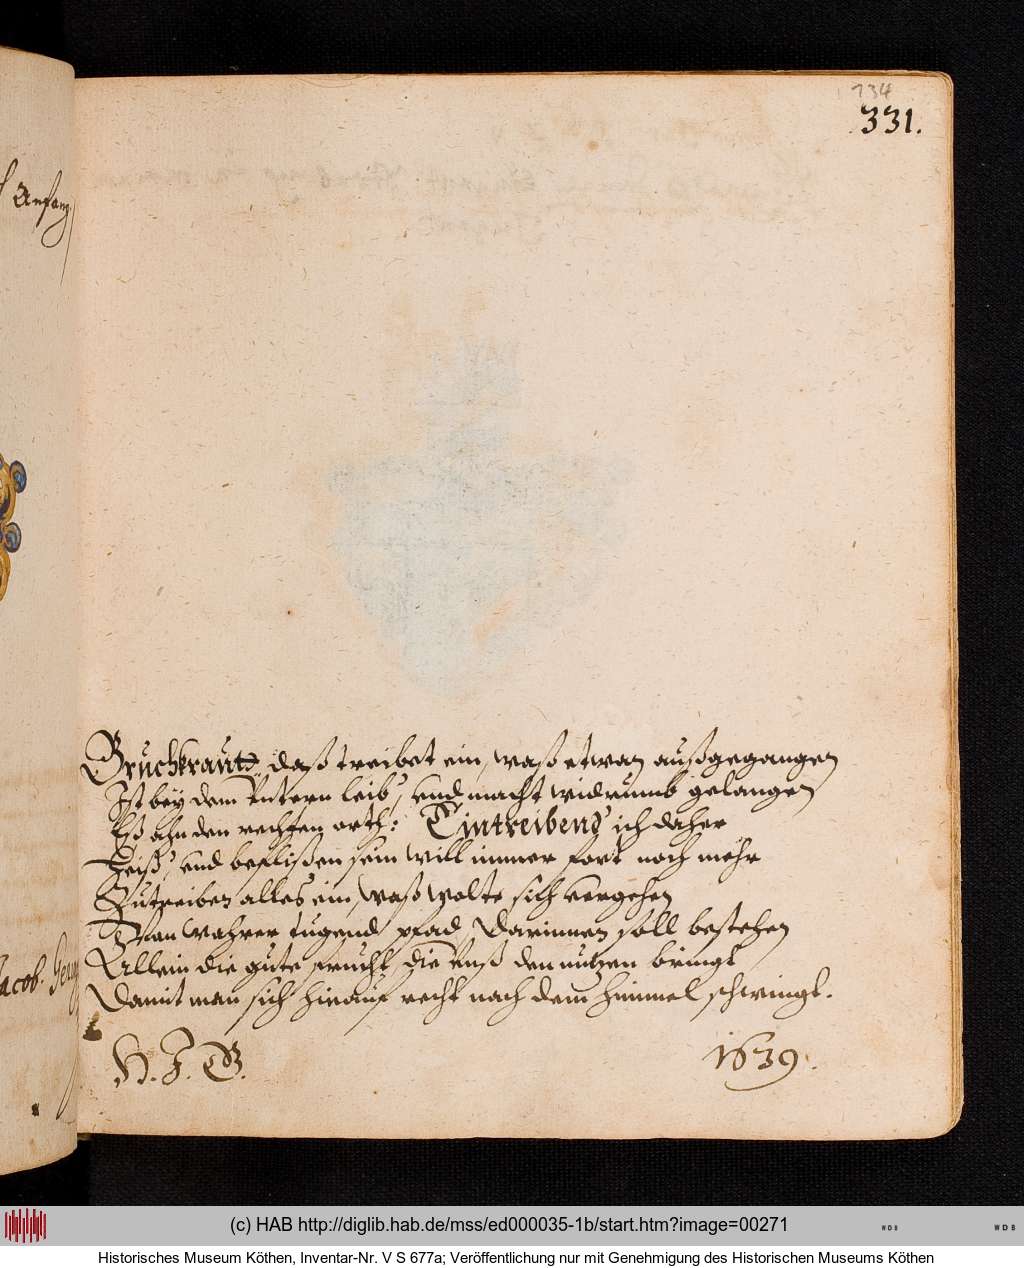 734
331.
Anfang
Bruchkrautt, daß treibet ein, waß etwan außgegangen
Ist bey dem Untern leib, und macht widrumb gelangen
Eß ahn den rechten orth: Eintreibend ich daher
Heiß, und beflißen sein will immer fort noch mehr
Zutreiben alles ein, waß wolte sich vergehen
Von wahrer tugend pfad, Darinnen soll bestehen
Allein die gute frucht, die unß den nutzen bringt
Damit man sich hinauf recht nach dem himmel schwingt.
H. J. B. 1639.
acob.
(c) HAB http://diglib.hab.de/mss/ed000035-1b/start.htm?image=00271
WDB
WDB
Historisches Museum Köthen, Inventar-Nr. V S 677a; Veröffentlichung nur mit Genehmigung des Historischen Museums Köthen